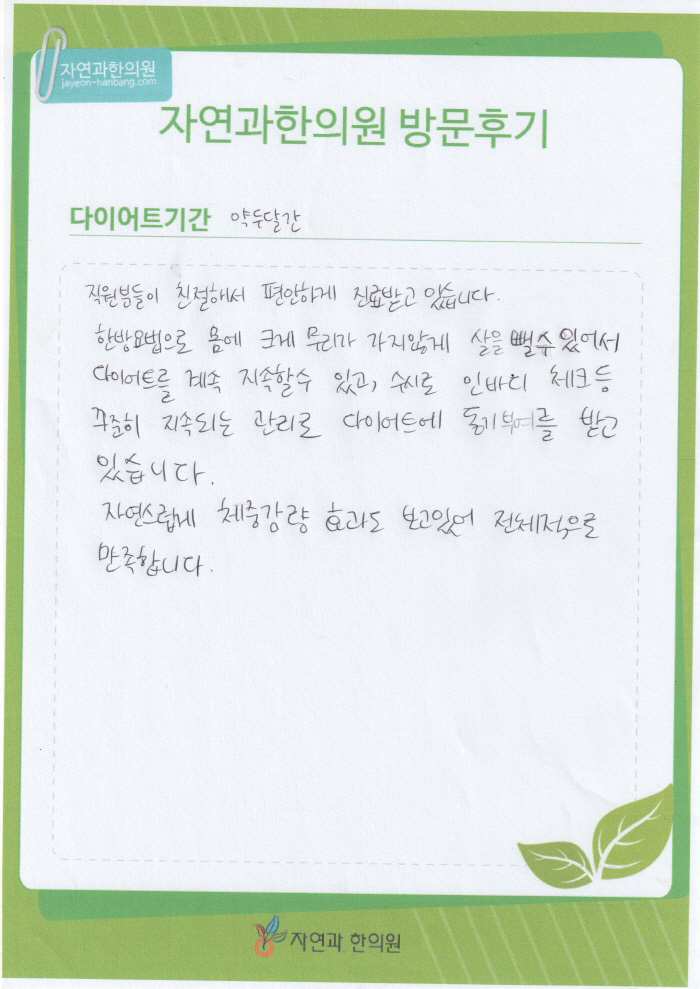 자연과한의원
jayeon-hanbang.com
자연과한의원 방문후기
다이어트기간 약두달간
직원분들이 친절해서 편안하게 진료받고 있습니다.
한방요법으로 몸에 크게 무리가 가지않게 살을 뺄수있어서
다이어트를 계속 지속할수 있고, 수시로 인바디 체크등
꾸준히 지속되는 관리로 다이어트에 동기부여를 받고
있습니다.
자연스럽게 체중감량 효과도 보고있어 전체적으로
만족합니다.
자연과 한의원